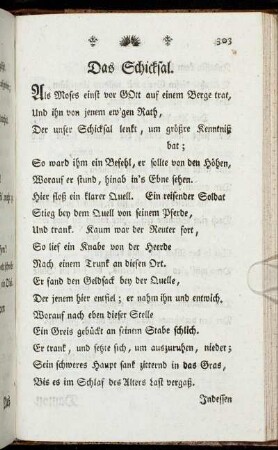 303
Das Schicksal.
Als Moses einst vor GOtt auf einem Berge trat,
Und ihn von jenem ew'gen Rath,
Der unser Schicksal lenkt, um größre Kenntniß
bat;
So ward ihm ein Befehl, er sollte von den Höhen,
Worauf er stund, hinab in's Ebne sehen.
Hier floß ein klarer Quell. Ein reisender Soldat
Stieg bey dem Quell von seinem Pferde,
Und trank. Kaum war der Reuter fort,
So lief ein Knabe von der Heerde
Nach einem Trunk an diesen Ort.
Er fand den Geldsack bey der Quelle,
Der jenem hier entfiel; er nahm ihn und entwich.
Worauf nach eben dieser Stelle
Ein Greis gebückt an seinem Stabe schlich.
Er trank, und setzte sich, um auszuruhen, nieder;
Sein schweres Haupt sank zitternd in das Gras,
Bis es im Schlaf des Alters Last vergaß.
Indessen